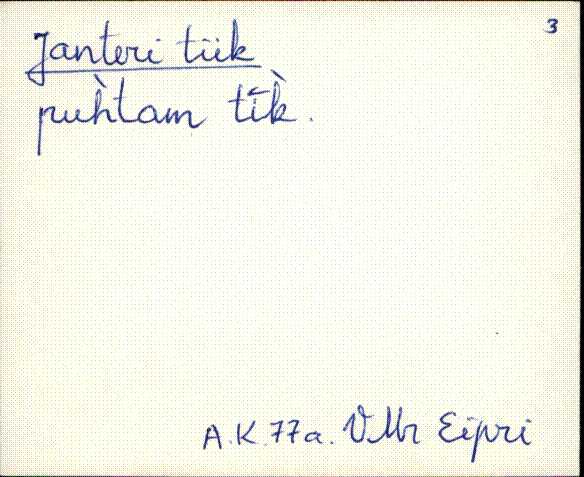 3
Janteri tiik
puh̀tam tīk̀.
A.K. 77a. VMr Eipri